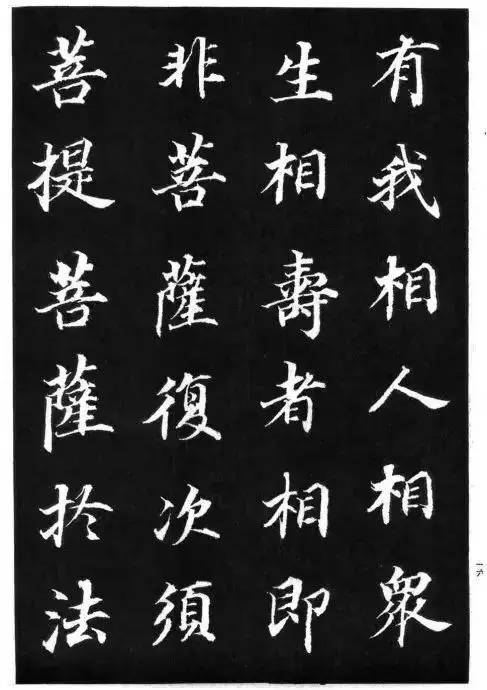 有我相人相眾
生相壽者相即
非菩薩復次須
菩提菩薩於法
一六